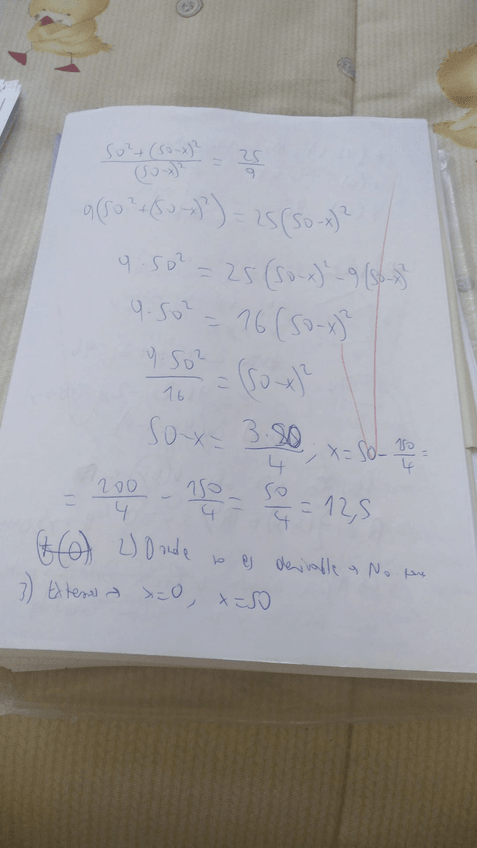 (50²+(50-x)²)/(50-x)² = 25/9
9(50²+(50-x)²) = 25(50-x)²
9·50² = 25(50-x)² - 9(50-x)²
9·50² = 16(50-x)²
9·50²/16 = (50-x)²
50-x = 3·50/4 ; x = 50 - 150/4 =
= 200/4 - 150/4 = 50/4 = 12,5
2) Donde no es derivable → No
3) Extremos → x=0, x=50